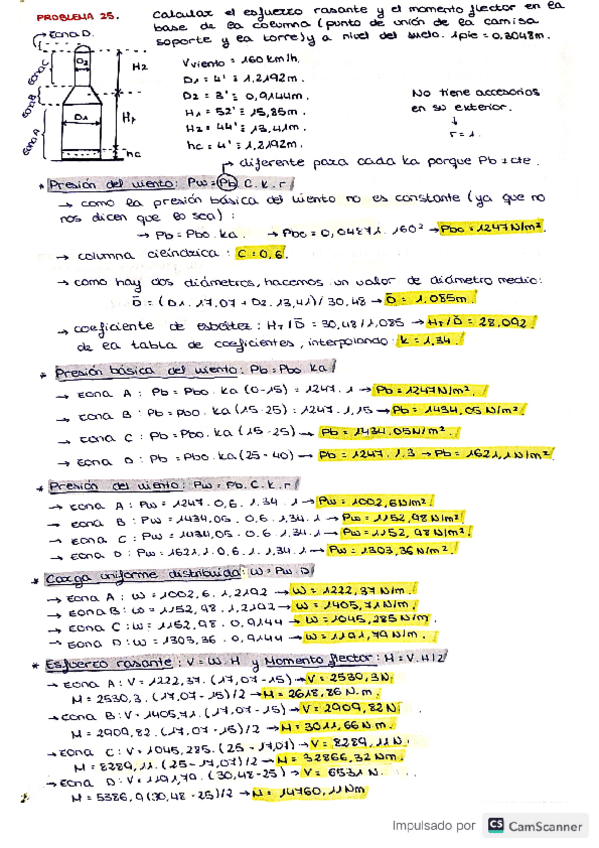 PROBLEMA 25.
Calcular el esfuerzo rasante y el momento flector en la
base de la columna (punto de unión de la camisa
soporte y la torre) y a nivel del suelo. 1pie = 0.3048m.
Zona D.
Zona C
Zona B
Zona A
D2
H2
D1
H1
hc
Vviento = 160 km/h.
D1 = 4' = 1,2192m.
D2 = 3' = 0,9144m.
H1 = 52' = 15,85m.
H2 = 44' = 13,41m.
hc = 4' = 1,2192m.
No tiene accesorios
en su exterior.
↓
r = 1.
→ diferente para cada ka porque Pb ≠ cte.
* Presión del viento: Pw = Pb. C. k. r
→ como la presión básica del viento no es constante (ya que no
nos dicen que lo sea):
→ Pb = Pbo. ka. → Pbo = 0,04871. 160² → Pbo = 1247N/m².
→ columna cilíndrica: C = 0,6.
→ como hay dos diámetros, hacemos un valor de diámetro medio:
D̄ = (D1. 17,07 + D2. 13,41) / 30,48 → D̄ = 1,085m.
→ coeficiente de esbeltez: HT/D̄ = 30,48/1,085 → HT/D̄ = 28,092.
de la tabla de coeficientes, interpolando: k = 1,34.
* Presión básica del viento: Pb = Pbo. ka
→ zona A: Pb = Pbo. ka (0-15) = 1247. 1 → Pb = 1247N/m².
→ zona B: Pb = Pbo. ka (15-25) = 1247. 1,15 → Pb = 1434,05 N/m².
→ zona C: Pb = Pbo. ka (15-25) → Pb = 1434,05N/m².
→ zona D: Pb = Pbo. ka (25-40) → Pb = 1247. 1.3 → Pb = 1621,1 N/m².
* Presión del viento: Pw = Pb. C. k. r
→ zona A: Pw = 1247. 0,6. 1,34. 1 → Pw = 1002,6N/m².
→ zona B: Pw = 1434,05. 0,6. 1,34. 1 → Pw = 1152,98 N/m².
→ zona C: Pw = 1434,05. 0,6. 1,34. 1 → Pw = 1152,98 N/m².
→ zona D: Pw = 1621,1. 0,6. 1. 1,34. 1 → Pw = 1303,36 N/m².
* Carga uniforme distribuida: W = Pw. D
→ zona A: W = 1002,6. 1,2192 → W = 1222,37 N/m.
→ zona B: W = 1152,98. 1,2192 → W = 1405,71 N/m.
→ zona C: W = 1152,98. 0,9144 → W = 1045,285 N/m.
→ zona D: W = 1303,36. 0,9144 → W = 1191,79 N/m.
* Esfuerzo rasante: V = W. H y Momento flector: M = V. H/2
→ zona A: V = 1222,37. (17,07 - 15) → V = 2530,3N.
M = 2530,3. (17,07 - 15)/2 → M = 2618,86 N.m.
→ zona B: V = 1405,71. (17,07 - 15) → V = 2909,82N.
M = 2909,82. (17,07 - 15)/2 → M = 3011,66 N.m.
→ zona C: V = 1045,285. (25 - 17,07) → V = 8289,11 N.
M = 8289,11. (25 - 17,07)/2 → M = 32866,32 Nm.
→ zona D: V = 1191,79. (30,48 - 25) → V = 6531 N.
M = 5386,9 (30,48 - 25)/2 → M = 14760,11 Nm
Impulsado por CS CamScanner